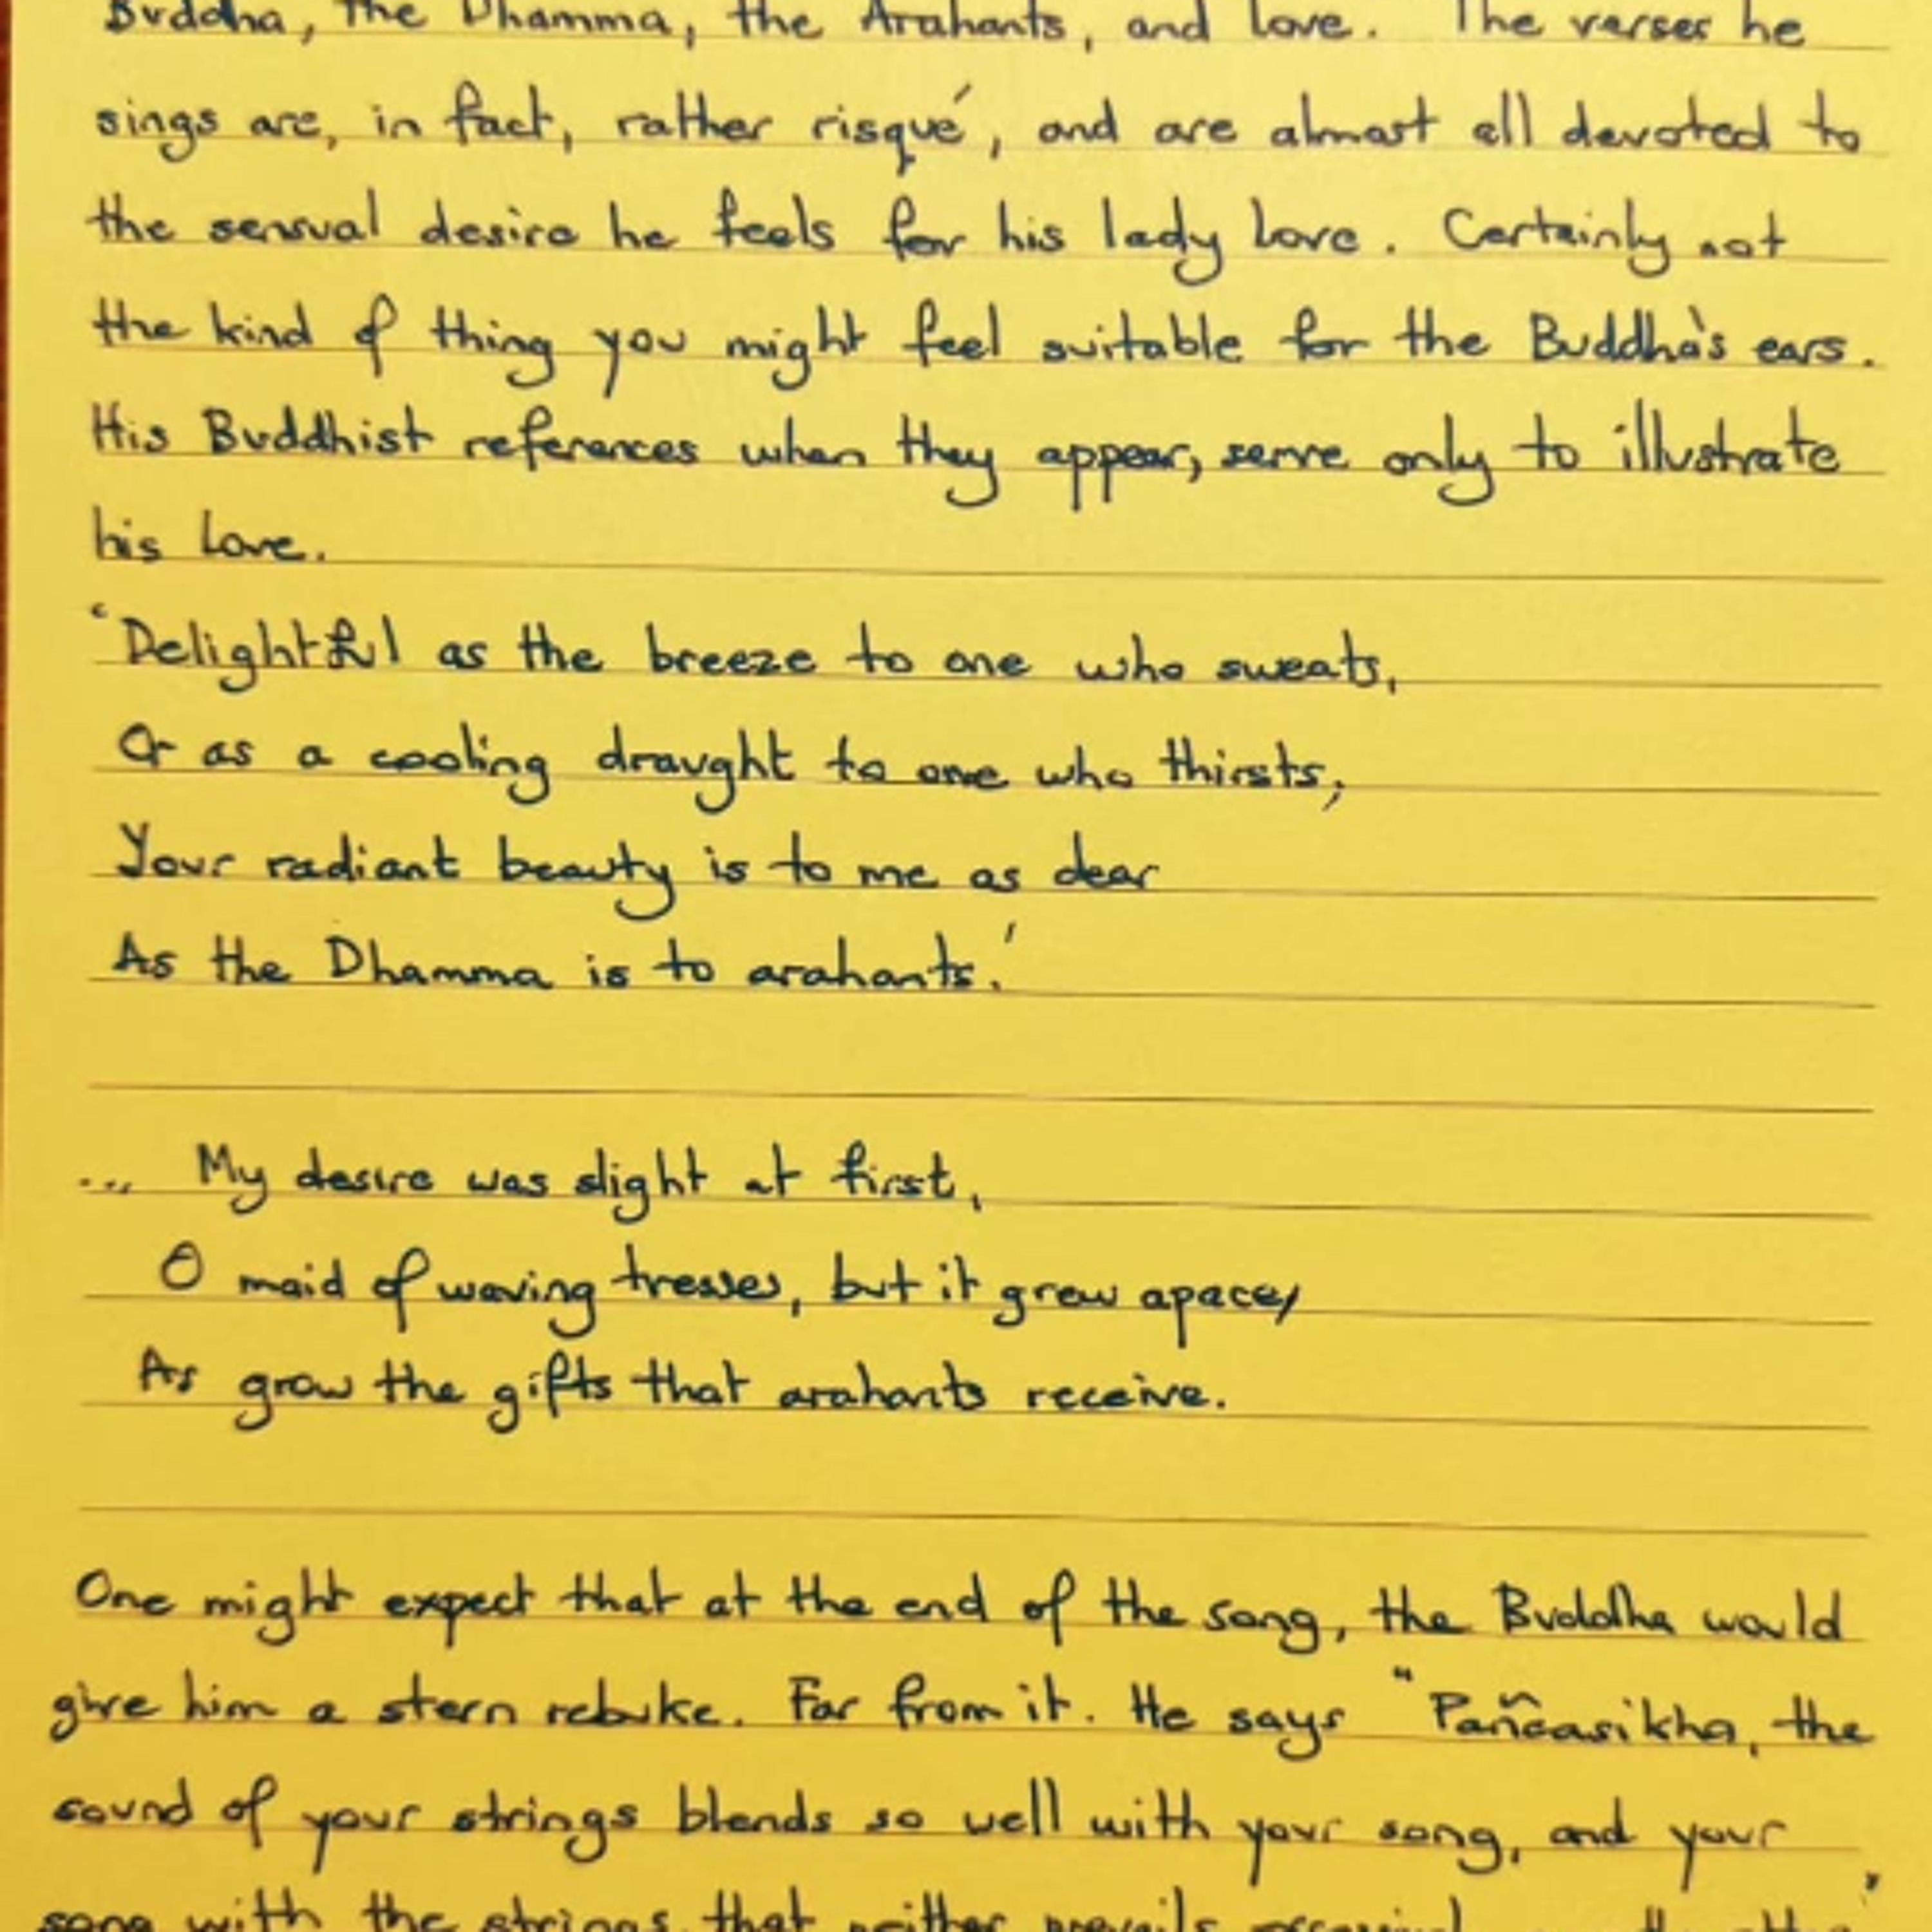 Buddha, the Dhamma, the Arahants, and love. The verses he
sings are, in fact, rather risqué, and are almost all devoted to
the sensual desire he feels for his lady love. Certainly not
the kind of thing you might feel suitable for the Buddha's ears.
His Buddhist references when they appear, serve only to illustrate
his love.
'Delightful as the breeze to one who sweats,
Or as a cooling draught to one who thirsts,
Your radiant beauty is to me as dear
As the Dhamma is to arahants.'
... My desire was slight at first,
O maid of waving tresses, but it grew apace,
As grow the gifts that arahants receive.
One might expect that at the end of the song, the Buddha would
give him a stern rebuke. Far from it. He says "Pañcasikha, the
sound of your strings blends so well with your song, and your
song with the strings, that neither prevails